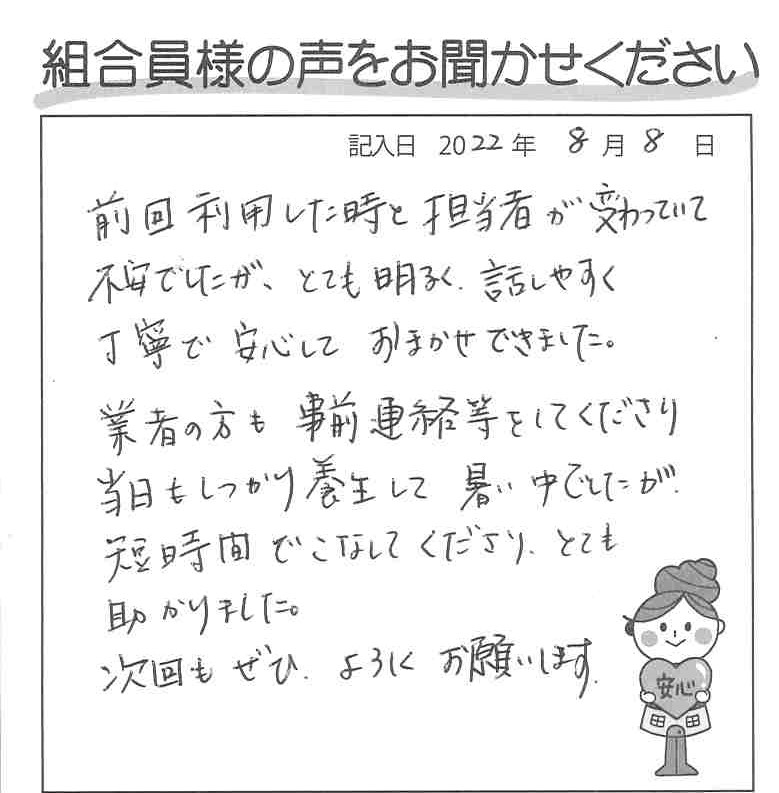 組合員様の声をお聞かせください
記入日 2022年 8月 8日
前回利用した時と担当者が変わっていて
不安でしたが、とても明るく、話しやすく
丁寧で安心しておまかせできました。
業者の方も事前連絡等をしてくださり
当日もしっかり養生して暑い中でしたが、
短時間でこなしてくださり、とても
助かりました。
次回もぜひ、よろしくお願いします。
安心